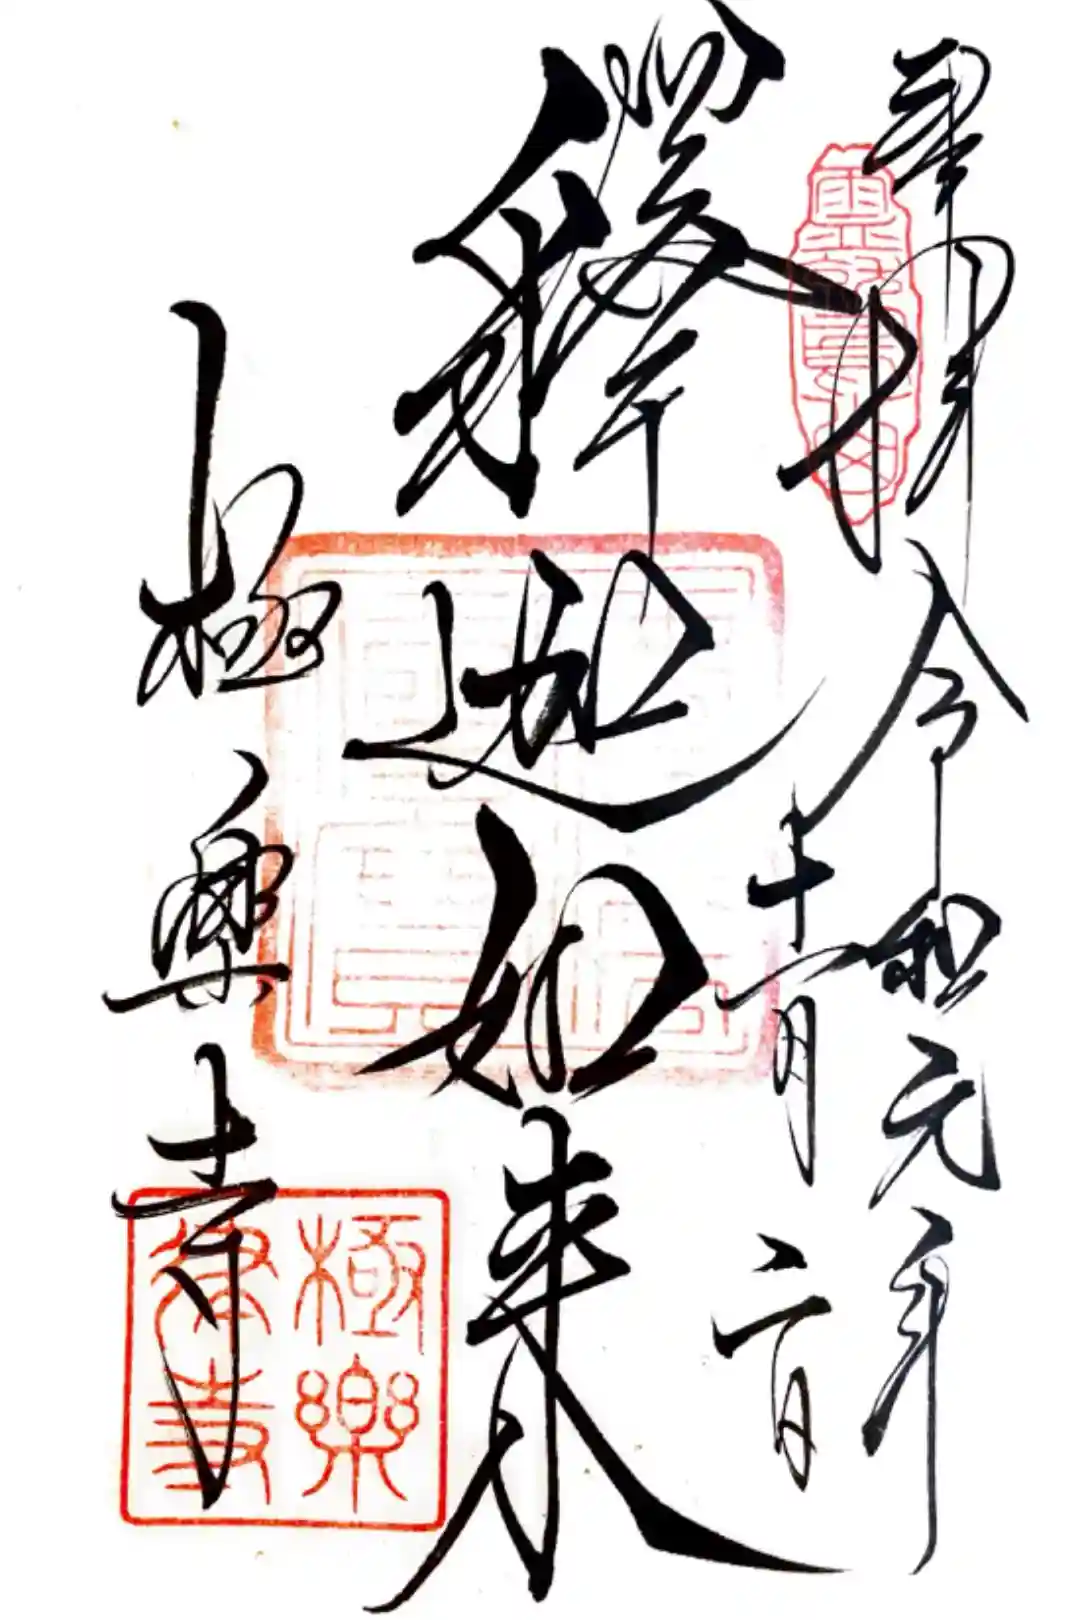 奉拝 令和元年
十一月 二日
釋迦如来
極樂寺
極樂
律寺